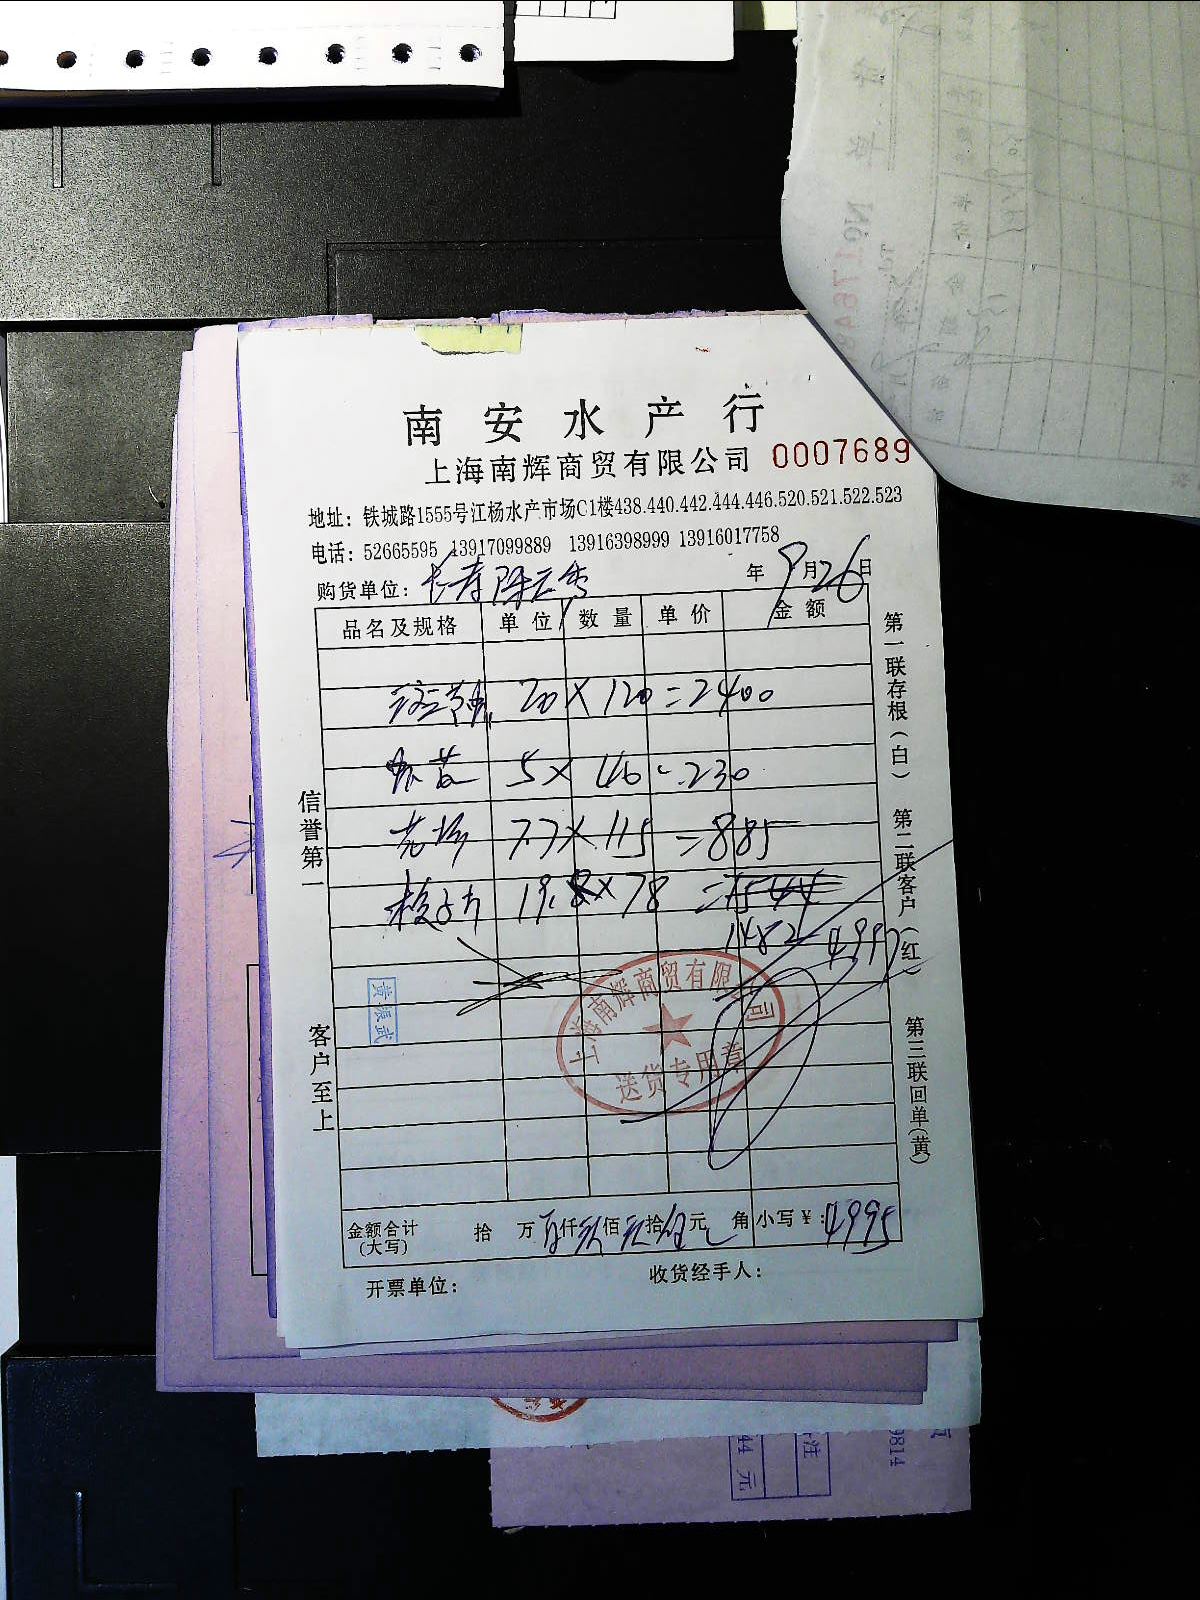 南安水产行
上海南辉商贸有限公司 0007689
地址：铁城路1555号江杨水产市场C1楼438.440.442.444.446.520.521.522.523
电话：52665595 13917099889 13916398999 13916017758
购货单位：长寿 年9月26日
品名及规格 单位 数量 单价 金额
20×120=2400
5×46=230
7.7×115=885
19.×78=1544
1482 4995
上海南辉商贸有限公司
送货专用章
黄浪武
信誉第一
客户至上
第一联存根(白)
第二联客户(红)
第三联回单(黄)
金额合计(大写) 拾 万 仟玖佰玖拾伍元 角 小写￥：4995
开票单位： 收货经手人：
44元
注
9814